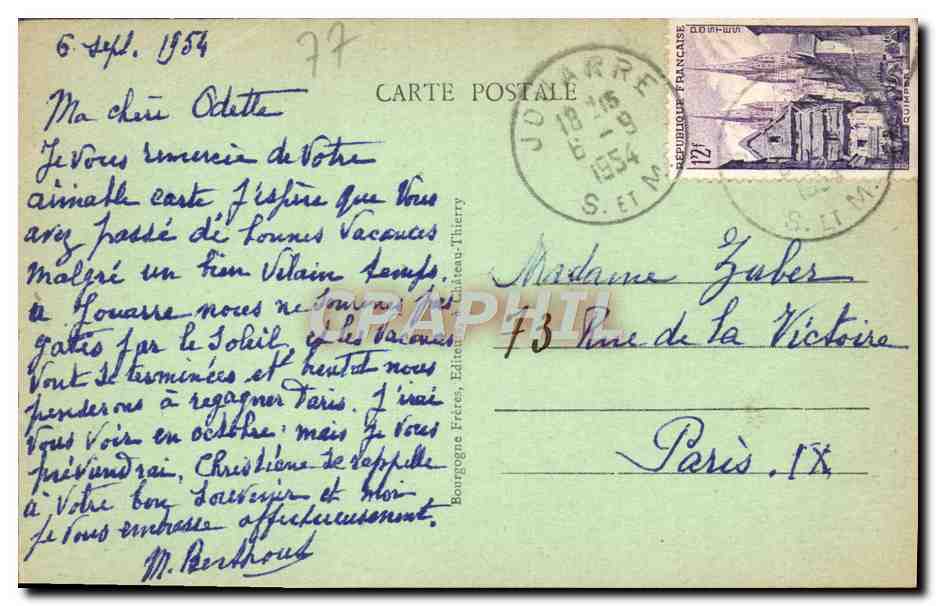 6 sept. 1954
77
CARTE POSTALE
Ma chère Odette
Je Vous remercie de Votre
aimable carte J'espère que Vous
avez passé de bonnes Vacances
malgré un bien Vilain temps.
à Jouarre nous ne sommes pas
gâtés par le Soleil, et les Vacances
Vont se terminées et bientôt nous
penserons à regagner Paris. J'irai
Vous Voir en octobre, mais je Vous
préviendrai. Christiane se rappelle
à Votre bon Souvenir et moi
je Vous embrasse affectueusement.
M. Berthout
Bourgogne Frères, Editeu Château-Thierry
CRAPHIL
JOUARRE
18 15
6 - 9
1954
S. ET M.
RÉPUBLIQUE FRANÇAISE
POSTES
12f
QUIMPER
S. ET M.
Madame Zuber
73 Rue de la Victoire
Paris. IX